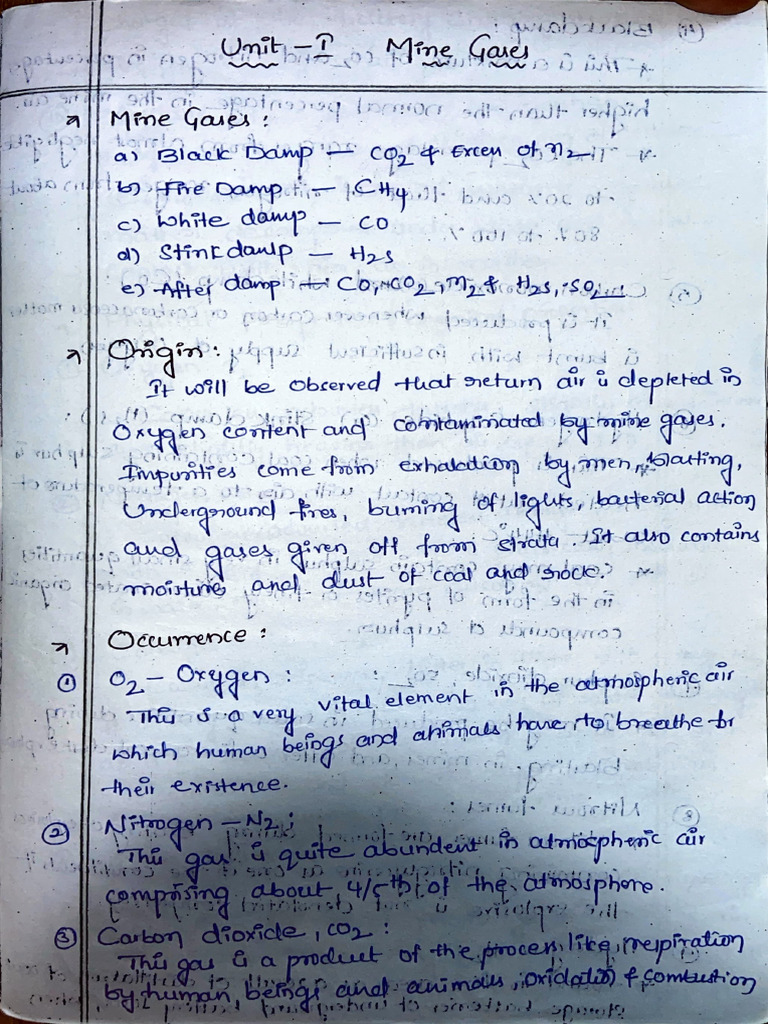 Unit - I Mine Gases
Mine Gases :
a) Black Damp — CO2 & Excen of n2
b) Fire Damp — CH4
c) White damp — CO
d) Stink damp — H2S
e) After damp — CO, CO2, n2 & H2S, SO2
Origin :
It will be observed that return air is depleted in
Oxygen content and contaminated by mine gases.
Impurities come from exhalation by men, blasting,
Underground fires, burning of lights, bacterial action
and gases given off from strata. It also contains
moisture and dust of coal and rock.
Occurrence :
① O2 - Oxygen :
This is a very vital element in the atmospheric air
which human beings and animals have to breathe for
their existence.
② Nitrogen - N2 :
This gas is quite abundent in atmospheric air
comprising about 4/5th of the atmosphere.
③ Carbon dioxide, CO2 :
This gas is a product of the process like respiration
by human beings and animals, oxidation & combustion